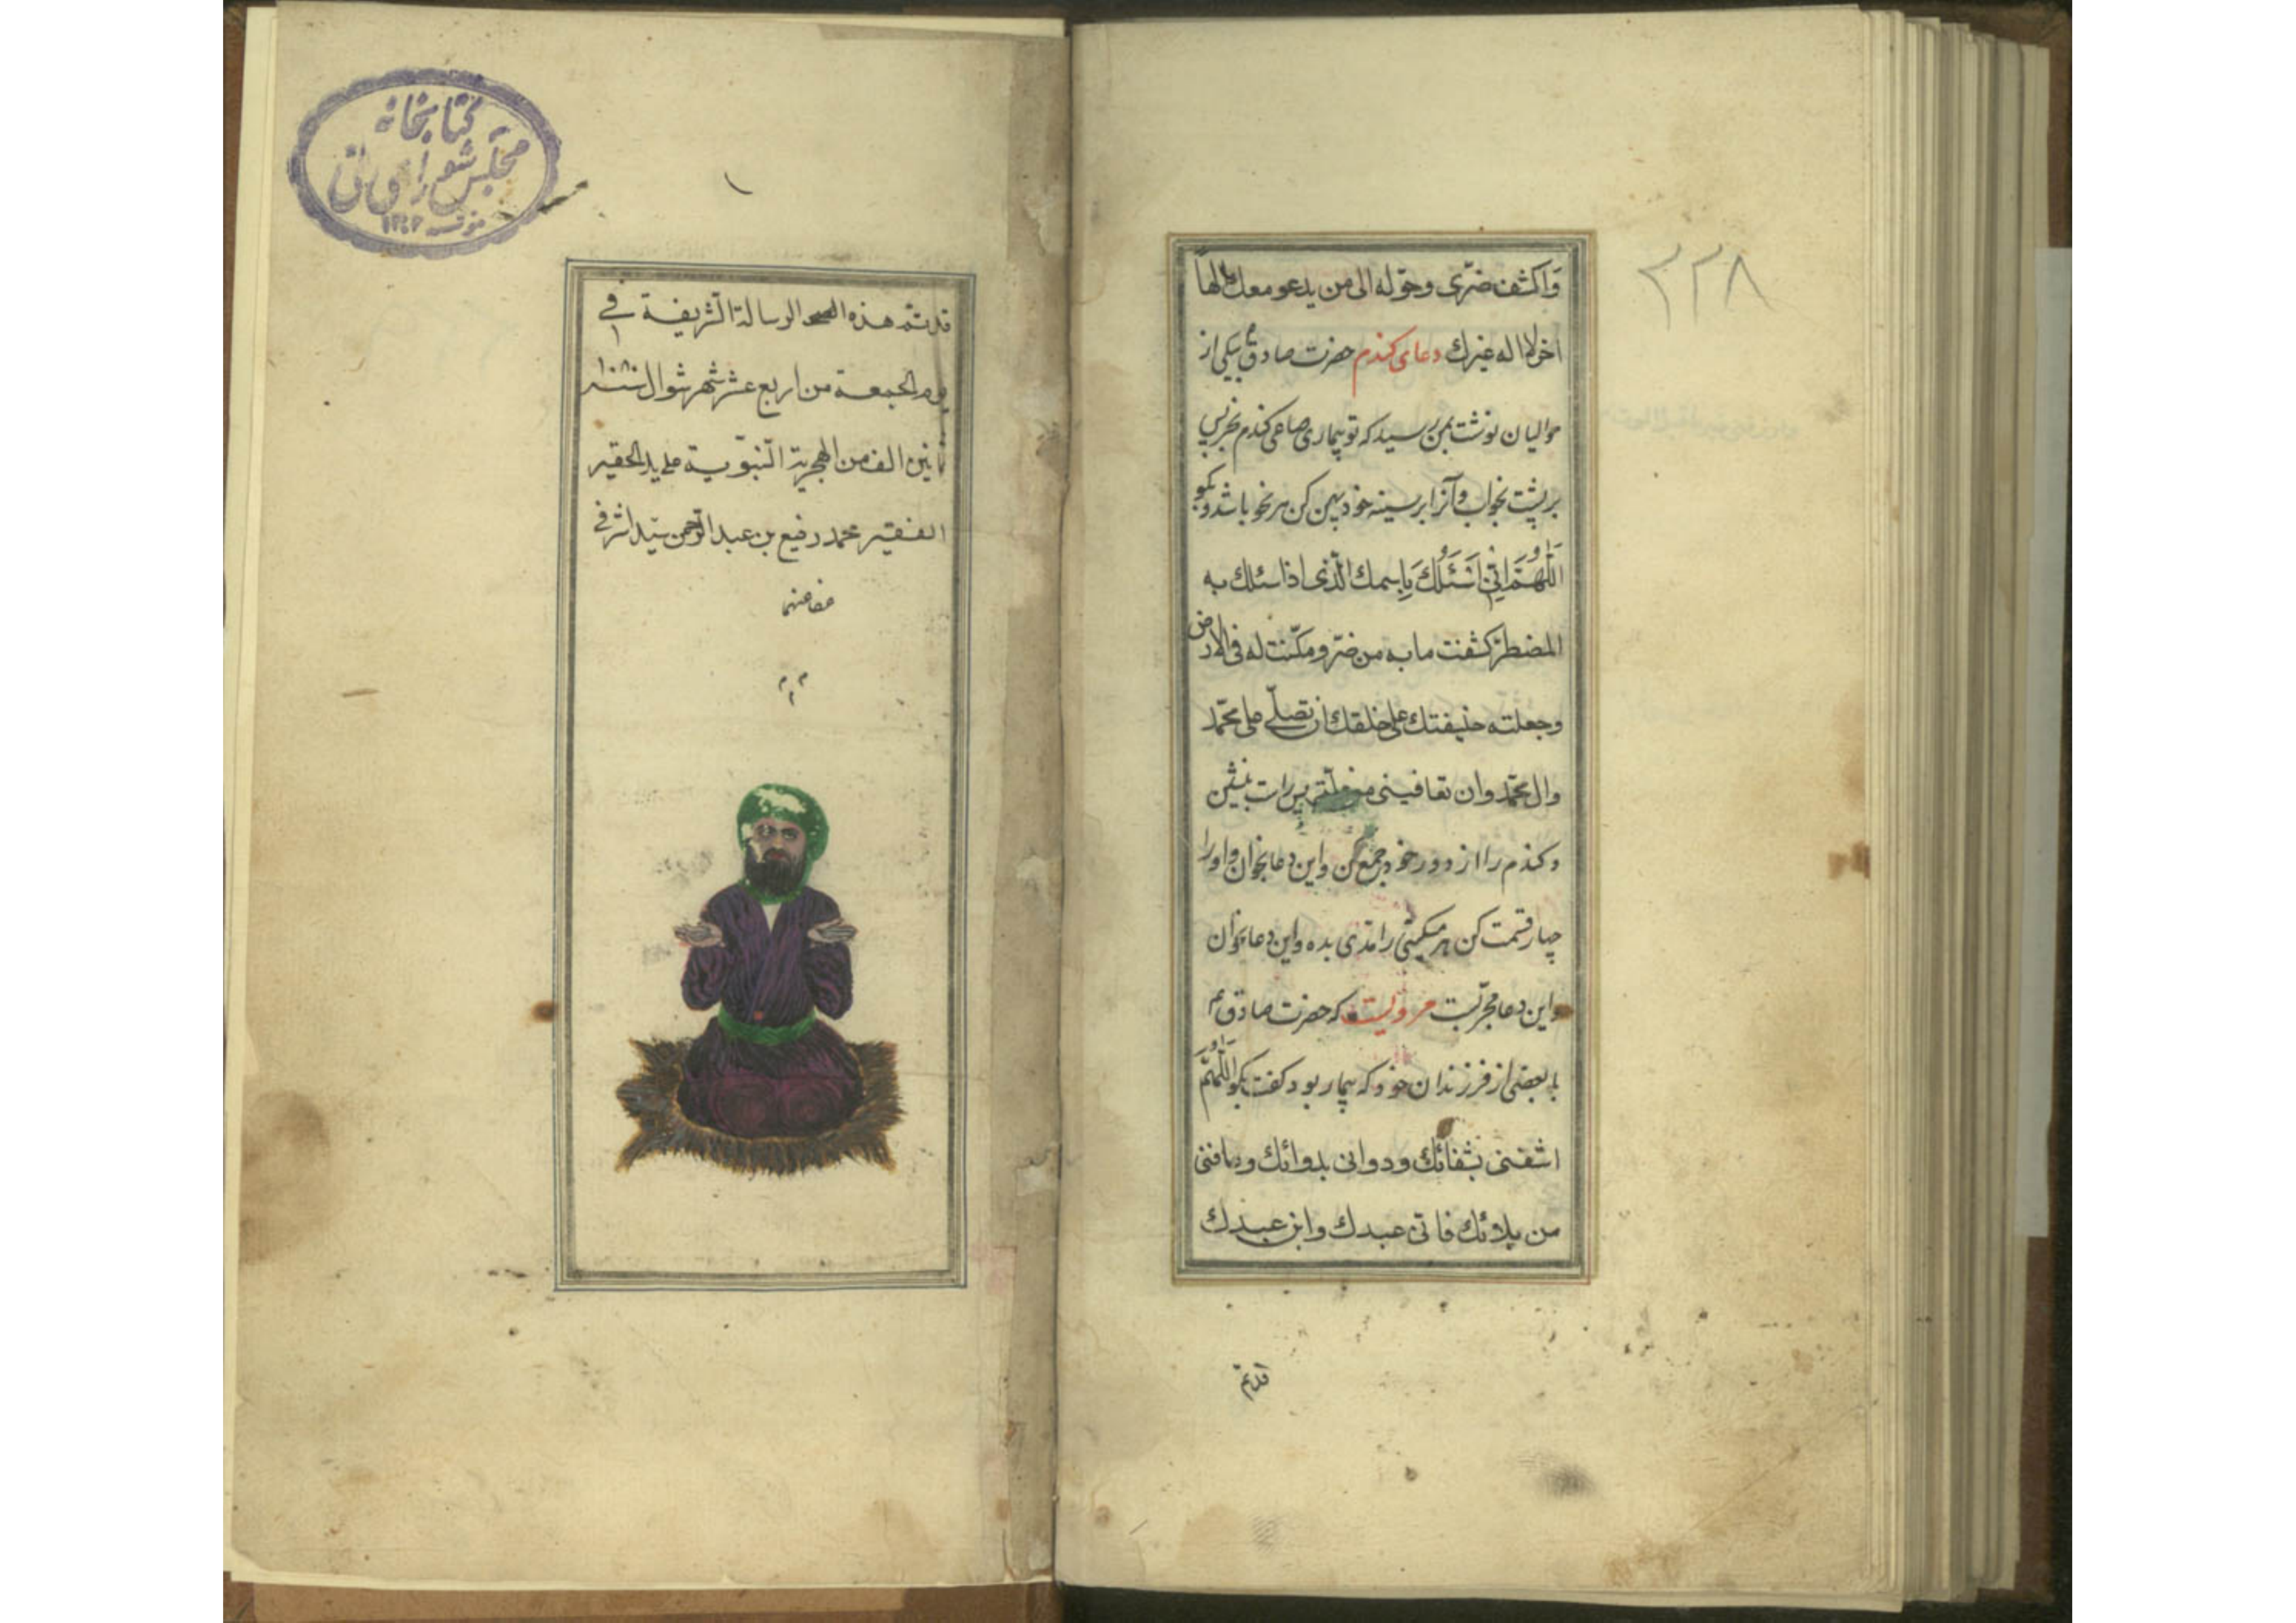 ٣٢٨
وَاكشف ضرّی وحوّله الی من یدعو معك الهاً
آخر لا اله غیرك دعای کندم حضرت صادق بیکی از
موالیان نوشت بمن رسید که تو بیماری صاعی کندم بخر پس
بر پشت بخواب وآنرا بر سینه خود پهن کن هر نحو باشد و بکو
اللّهمّ انّی اَسْئَلُكَ بِاسمك الّذی اذا سئلك به
المضطرّ کشفت ما به من ضرّ ومکّنت له فی الارض
وجعلته خلیفتك علی خلقك ان تصلّی علی محمّد
وال محمّد وان تعافینی من علّتی پس راست بنشین
و کندم را از دور خود جمع کن واین دعا بخوان واورا
چهار قسمت کن هر یك را مدّی بده واین دعا بخوان
واین دعا مجرّبست مرویست که حضرت صادق ع
با بعضی از فرزندان خود که بیمار بود کفت بکو اللّهمّ
اشفنی بشفائك ودوانی بدوائك وعافنی
من بلائك فانّی عبدك وابن عبدك
قد تم
کتابخانه
مجلس شورای ملی
١
قد تمّ هذه الرسالة الشریفة فی
یوم الجمعة من اربع عشر شهر شوال سنة ١٠٨٠
ثمانین الف من الهجریة النّبوّیة علی ید الحقیر
الفقیر محمد رفیع بن عبد الرحمن سیّد اشرفی
عفا عنهما
م م م